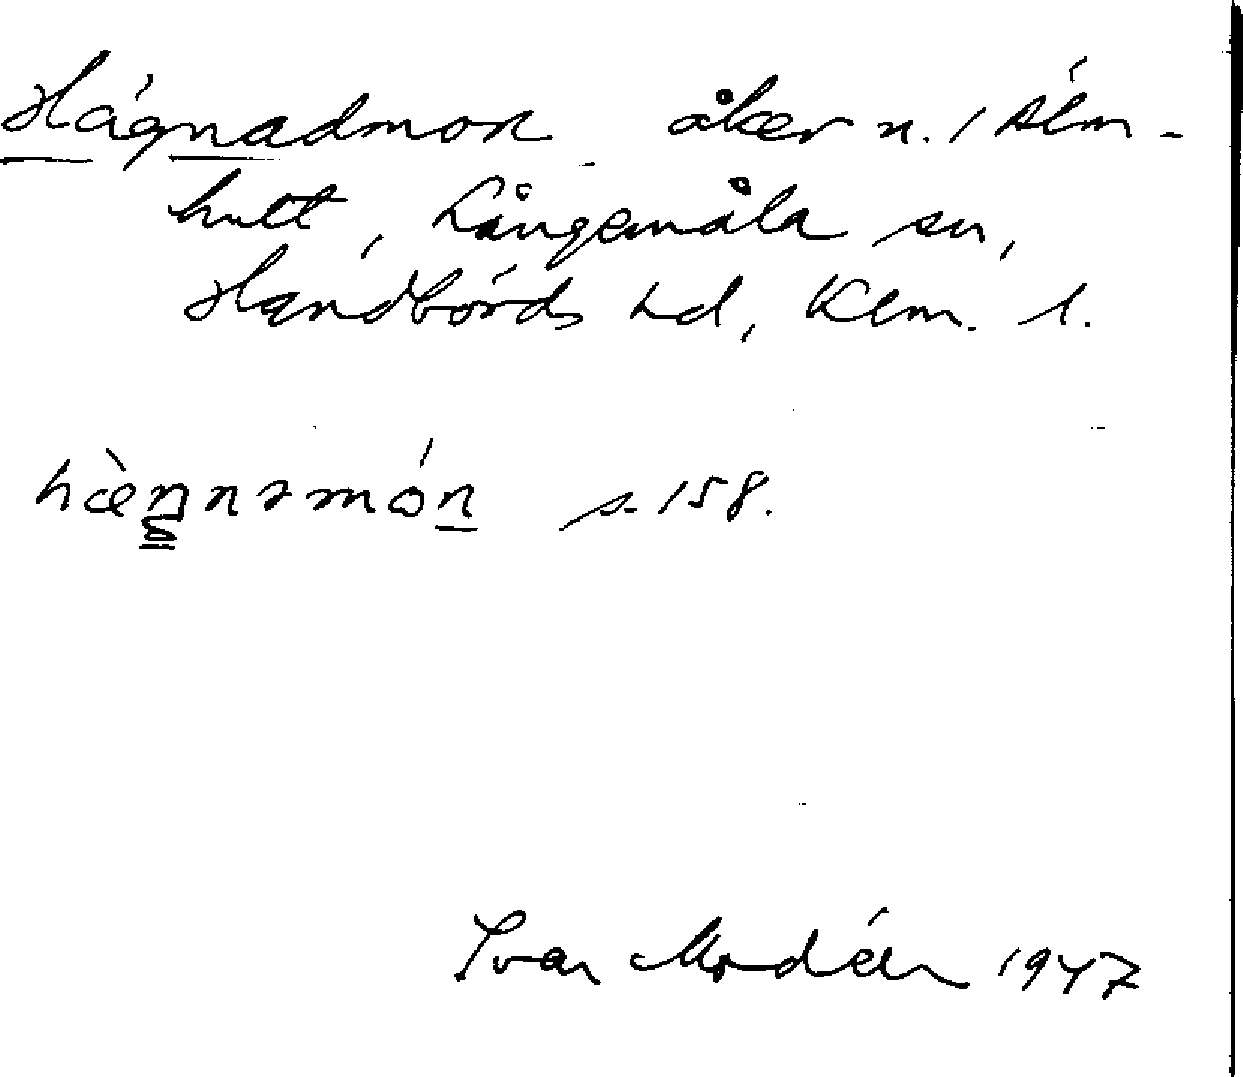 Hägnadmon åker n. / Älm-
hult, Långemåla sn,
Handbörds hd, Klm. l.
hæ̀ŋnəmón s. 158.
Ivar Modéer 1947